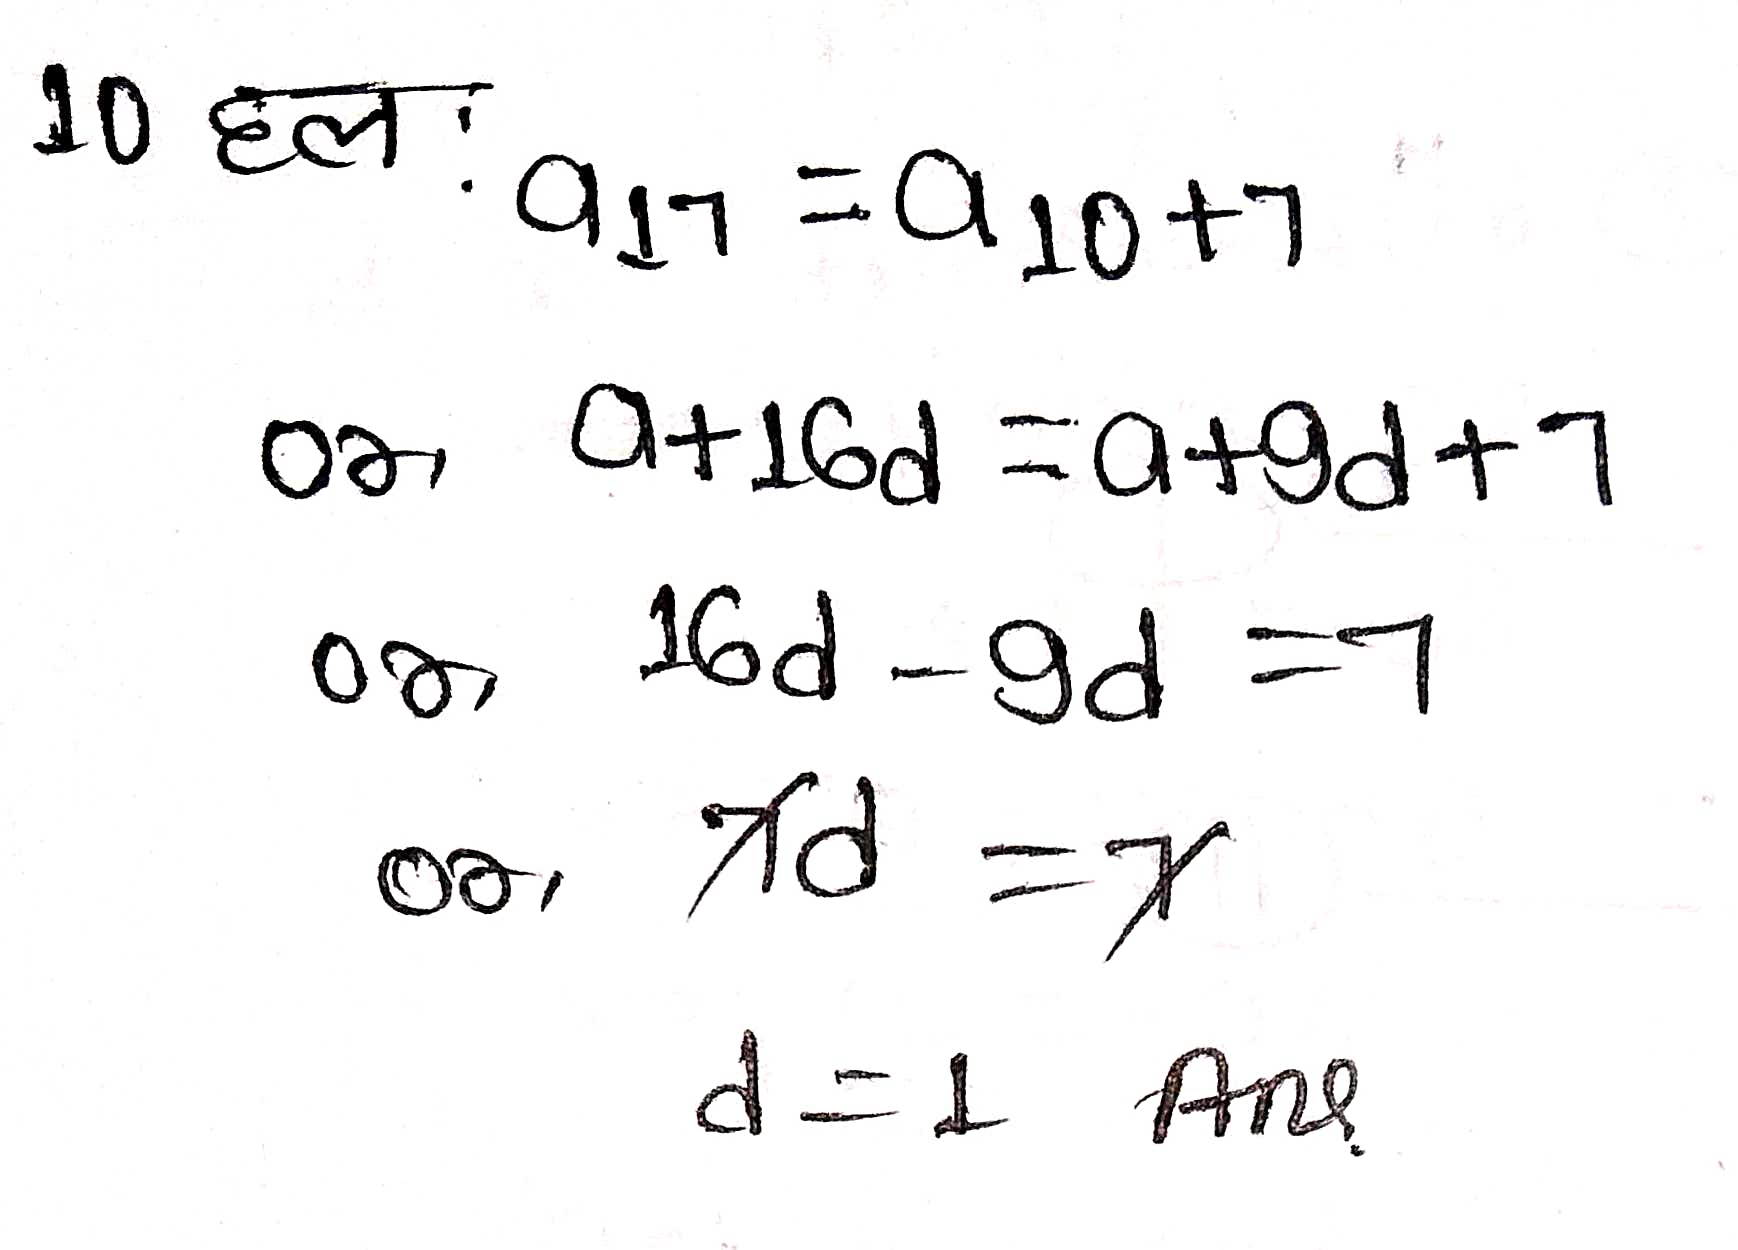 10 हल :
a17 = a10+7
or, a+16d = a+9d+7
or, 16d-9d = 7
or, 7d = 7
d = 1 Ans.